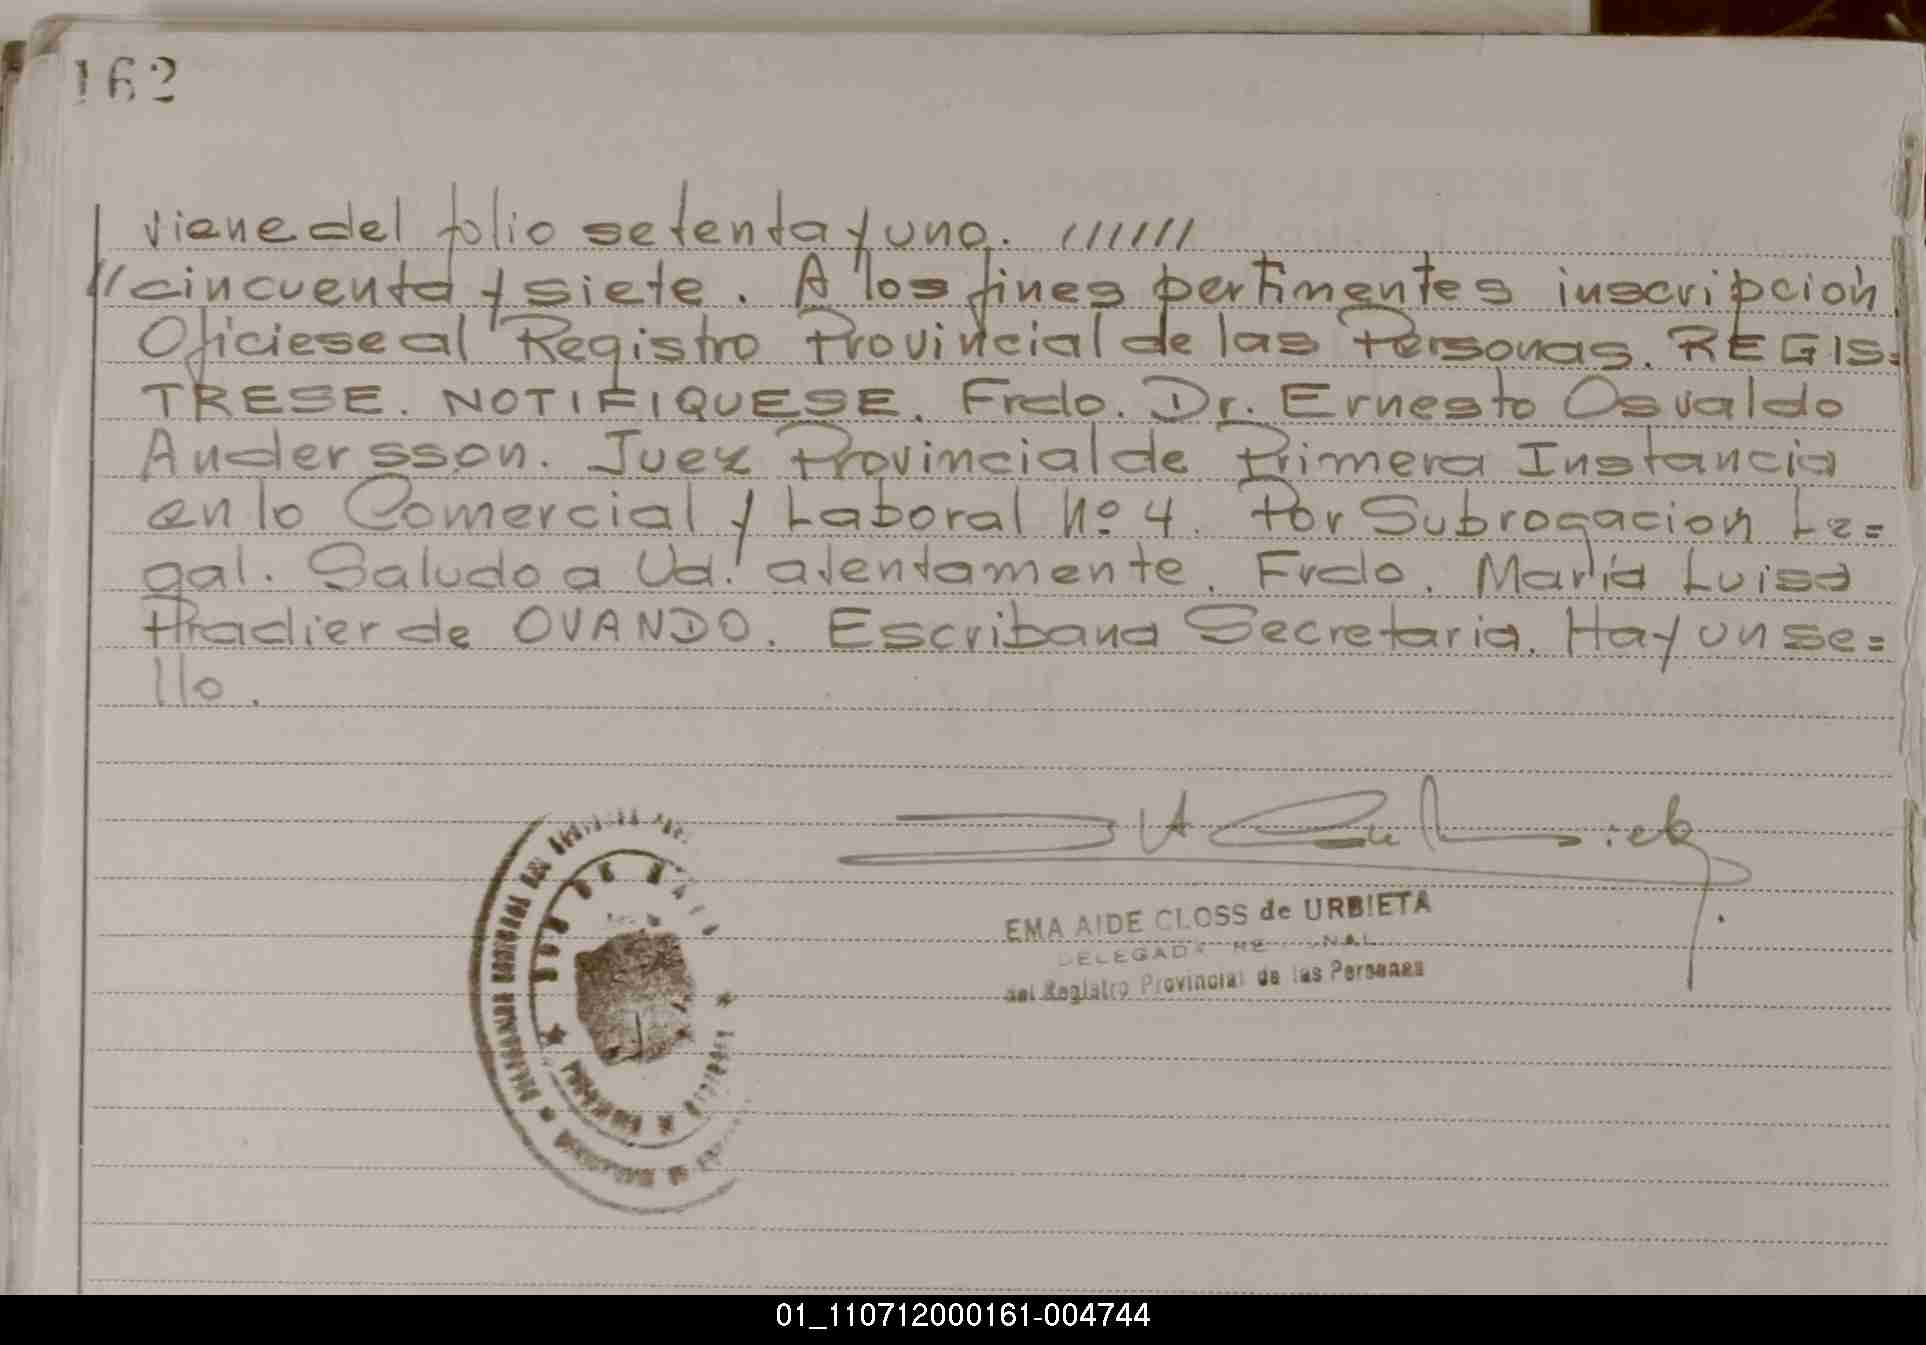 162
viene del folio setenta y uno. //////
//cincuenta y siete. A los fines pertinentes inscripción
Oficiese al Registro Provincial de las Personas. REGIS=
TRESE. NOTIFIQUESE. Frdo. Dr. Ernesto Osvaldo
Andersson. Juez Provincial de Primera Instancia
en lo Comercial y Laboral Nº 4. Por Subrogacion Le=
gal. Saludo a Ud. atentamente. Frdo. María Luisa
Pradier de OVANDO. Escribana Secretaria. Hay un se=
llo.
EMA AIDE CLOSS de URBIETA
DELEGADA
del Registro Provincial de las Personas
01_110712000161-004744